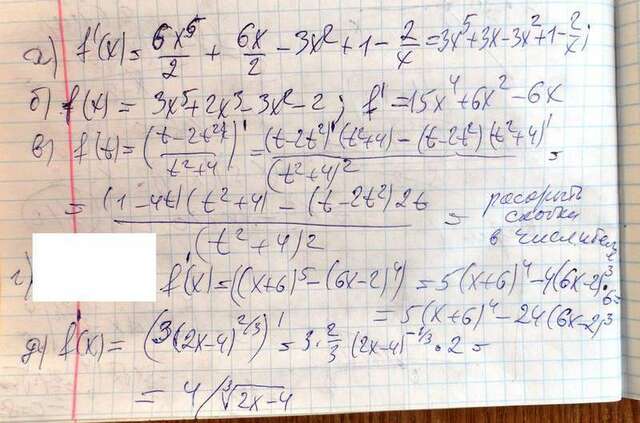 а) f'(x) = 6x⁵/2 + 6x/2 - 3x² + 1 - 2/x = 3x⁵ + 3x - 3x² + 1 - 2/x;
б) f(x) = 3x⁵ + 2x³ - 3x² - 2; f' = 15x⁴ + 6x² - 6x
в) f'(t) = ((t-2t²)/(t²+4))' = ((t-2t²)'(t²+4) - (t-2t²)(t²+4)')/(t²+4)² =
= ((1-4t)(t²+4) - (t-2t²)2t)/(t²+4)2 = раскрыть скобки в числителе
г) f'(x) = ((x+6)⁵ - (6x-2)⁴) = 5(x+6)⁴ - 4(6x-2)³·6 =
= 5(x+6)⁴ - 24(6x-2)³
д) f'(x) = (3(2x-4)^2/3)' = 3·2/3 (2x-4)^-1/3 · 2 =
= 4/∛2x-4